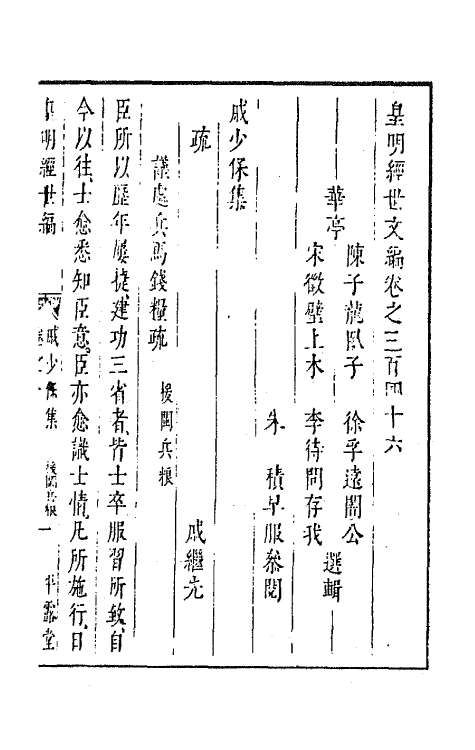 皇明經世文編卷之三百四十六
華亭
陳子龍臥子 徐孚遠闇公
宋徵璧上木 李待問存我 選輯
朱積早服參閱
戚少保集
疏 戚繼光
議處兵馬錢糧疏 援閩兵糧
臣所以歷年屢捷、建功三省者、皆士卒服習所致、自
今以往、士愈悉知臣意、臣亦愈識士情、凡所施行、日
皇明經世編 戚少保集 援閩兵糧 一 平露堂